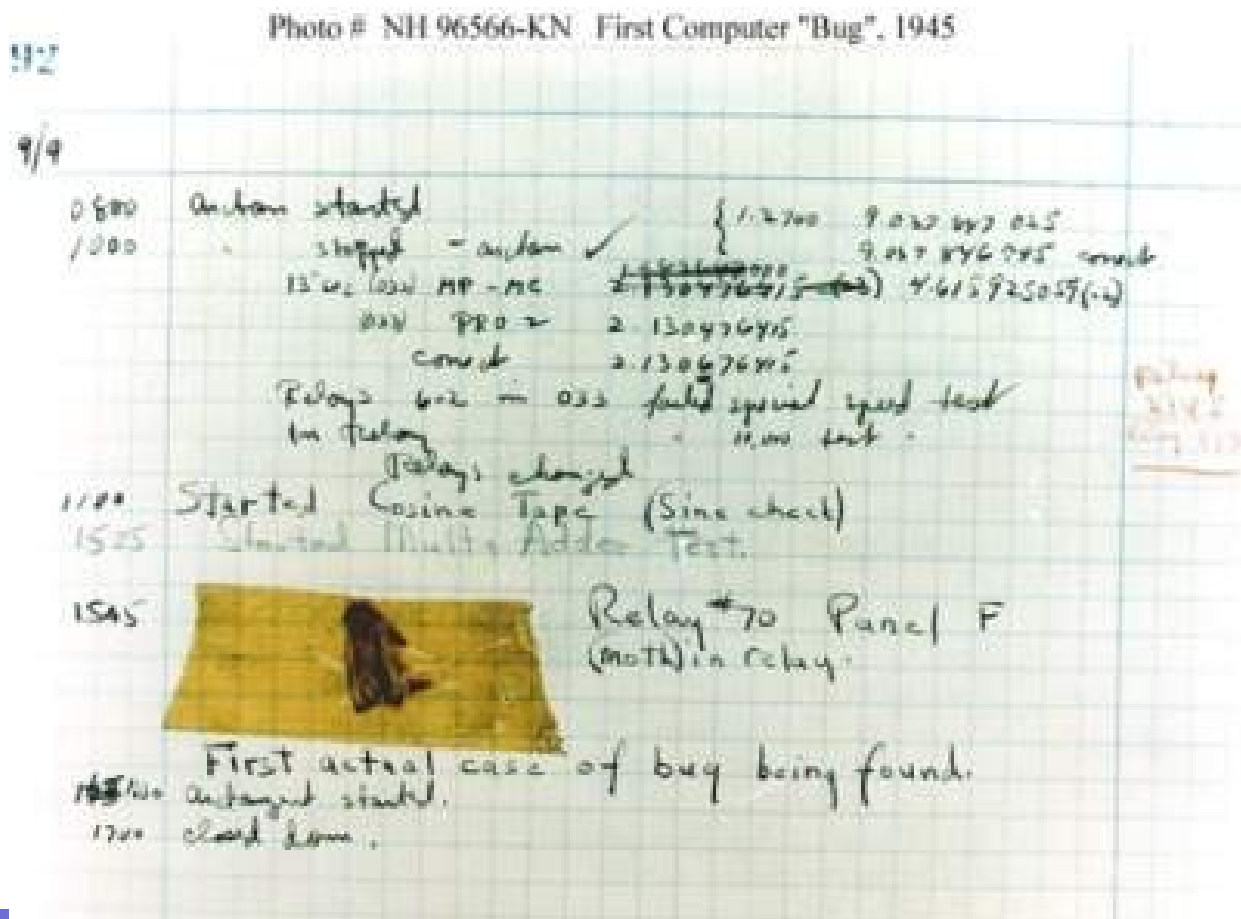 Photo # NH 96566-KN First Computer "Bug", 1945
92
9/9
0800 antan started
1000 " stopped - antan ✓ { 1.2700 9.037 847 025
9.037 846 995 correct
13"uc (032) MP - MC 4.615925059(-2)
(033) PRO 2 2.130476415
correct 2.130676415
Relays 6-2 in 033 failed special speed test
in relay " 11,000 test "
Relays changed
1100 Started Cosine Tape (Sine check)
1525 Started Mult+ Adder Test.
1545 Relay #70 Panel F
(moth) in relay.
First actual case of bug being found.
antangent started.
1700 closed down.